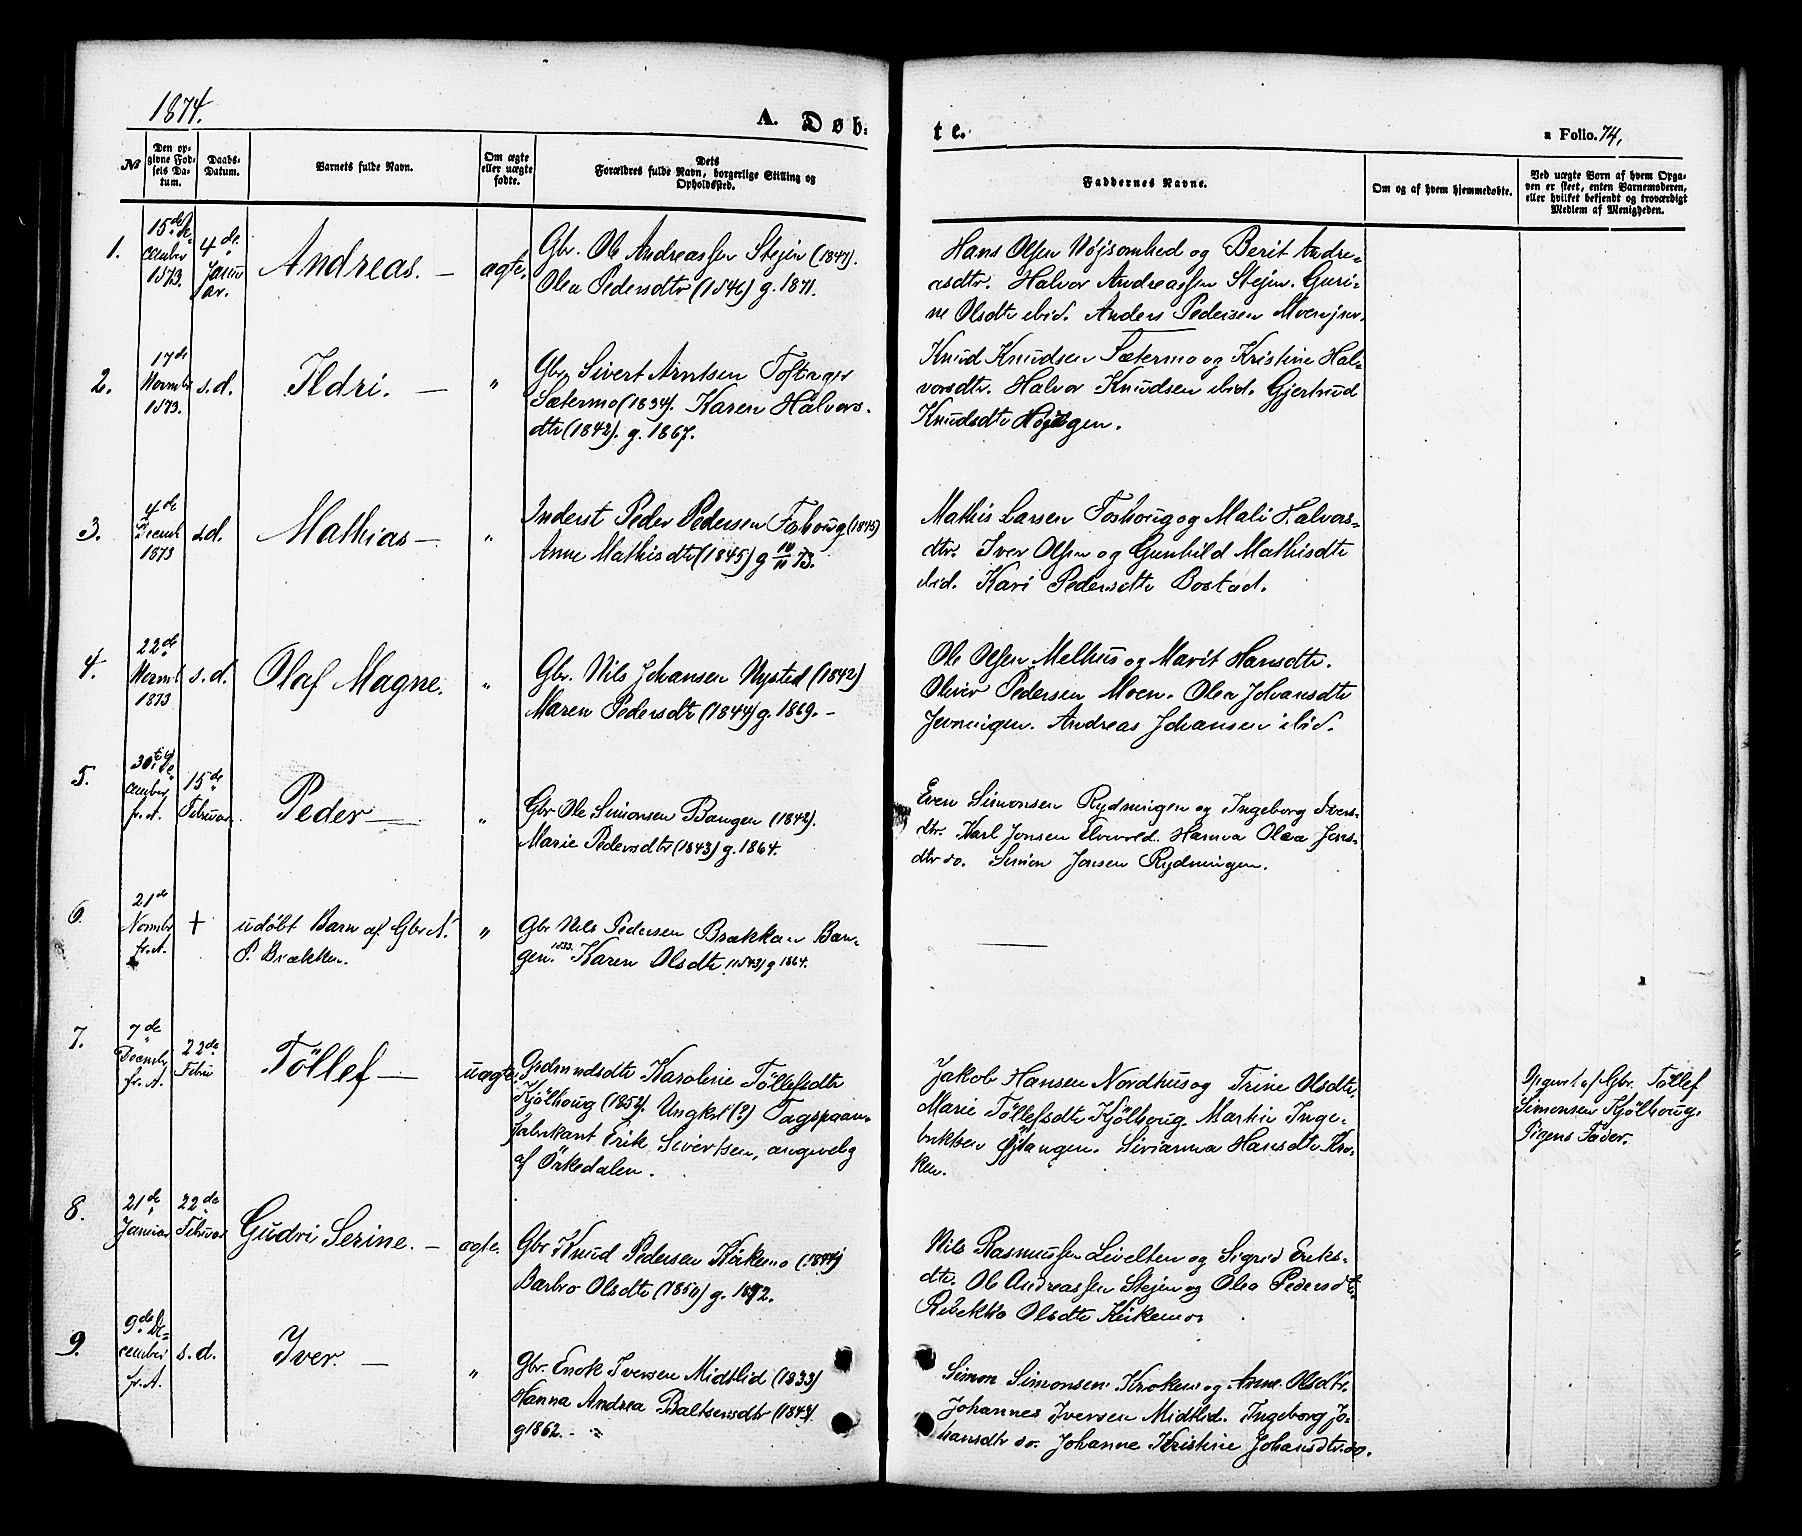 1874.
A. Døb-
te.
a Folio. 74.
No
Den op-
givne Fød-
sels Da-
tum.
Daabs-
Datum.
Barnets fulde Navn.
Om ægte
eller uægte
fødte.
Dets
Forældres fulde Navn, borgerlige Stilling og
Opholdssted.
Faddernes Navne.
Om og af hvem hjemmedøbte.
Ved uægte Børn af hvem Opga-
ven er skeet, enten Barnemoderen,
eller hvilket bekjendt og troværdigt
Medlem af Menigheden.
1.
15de De-
cember
1873.
4de
Janu
ar.
Andreas. —
ægte.
Gbr. Ole Andreassen Stejen (1847).
Olea Pedersdtr (1846) g. 1871.
Hans Olsen Nøjsomhed og Berit Andre-
asdtr. Halvor Andreassen Stejen. Guri-
ne Olsdtr ibid. Anders Pedersen
2.
17de
Novmbr
1873.
s.d.
Ildri. —
"
Gbr. Sivert Arntsen
Sætermo (1834). Karen Halvors-
dtr (1842). g. 1867.
Knud Knudsen Sætermo og Kristine Hal-
vorsdtr. Halvor Knudsen ibid. Gjertrud
Knudsdtr
3.
4de
Decmb
1873
s.d.
Mathias —
"
Inderst Peder Pedersen Foshoug (1845)
Anne Mathisdtr (1845) g 10/11 73.
Mathis Larsen Foshoug og Mali Halvors-
dtr. Iver Olsen og Gunhild Mathisdtr
ibid. Kari Pedersdtr Bostad.
4.
22de
Novmb
1873
s.d.
Olaf Magne.
"
Gbr. Nils Johansen Nysted (1842)
Maren Pedersdtr (1844) g. 1869. —
Ole Olsen Melhus og Marit Hansdtr.
Oliver Pedersen Moen. Olea Johansdtr
Jenningen. Andreas Johansen ibid.
5.
30te De-
cember
fr. A.
15de
Februar
Peder —
"
Gbr Ole Simonsen Bangen (1842).
Marie Pedersdtr (1843) g. 1864.
Even Simonsen Rydningen og Ingeborg Ivers-
dtr. Karl Jonsen Elvevold. Hanna Olea Jens-
dtr do. Simon Jonsen Rydningen.
6.
21de
Novmbr
fr. A.
+
udøbt Barn af Gbr N.
P. Brækken.
"
Gbr Nils Pedersen Brækkan Ban-
gen. 1833. Karen Olsdtr (1843) g 1864.
—
7.
7de
Decmbr
fr. A.
22de
Febru
Töllef —
uægte.
Grdmndsdtr Karolinie Töllefsdtr
Kjölhoug (1852). Ungkrl (?) Tagspaan-
fabrikant Erik Sivertsen, angivelig
af Örkedalen.
Jakob Hansen Nordhus og Trine Olsdtr.
Marie Töllefsdtr Kjölhoug. Martin Inge-
briktsen Livianna Hansdtr Kro-
ken.
Opgivet af Gbr. Töllef
Simonsen Kjölhoug.
Pigens Fader.
8.
21de
Januar
22de
Februar
Gudri Serine. —
ægte.
Gbr Knud Pedersen Kirkemo (1844)
Barbro Olsdtr (1850) g. 1872.
Nils Rasmussen Livelten og Sigrid Eriks-
dtr. Ole Andreassen Stejen og Olea Pedersdtr.
Rebekka Olsdtr Kirkemo
9.
9de De-
cember
fr. A.
s. d.
Iver. —
"
Gbr. Enok Iversen Midtlid (1833)
Hanna Andrea Baltsersdtr (1843).
g1862. —
Simon Simonsen Kroken og Anne Olsdtr.
Johannes Iversen Midtlid. Ingeborg Jo-
hansdtr do. Johanne Kristine Johansdtr. do.